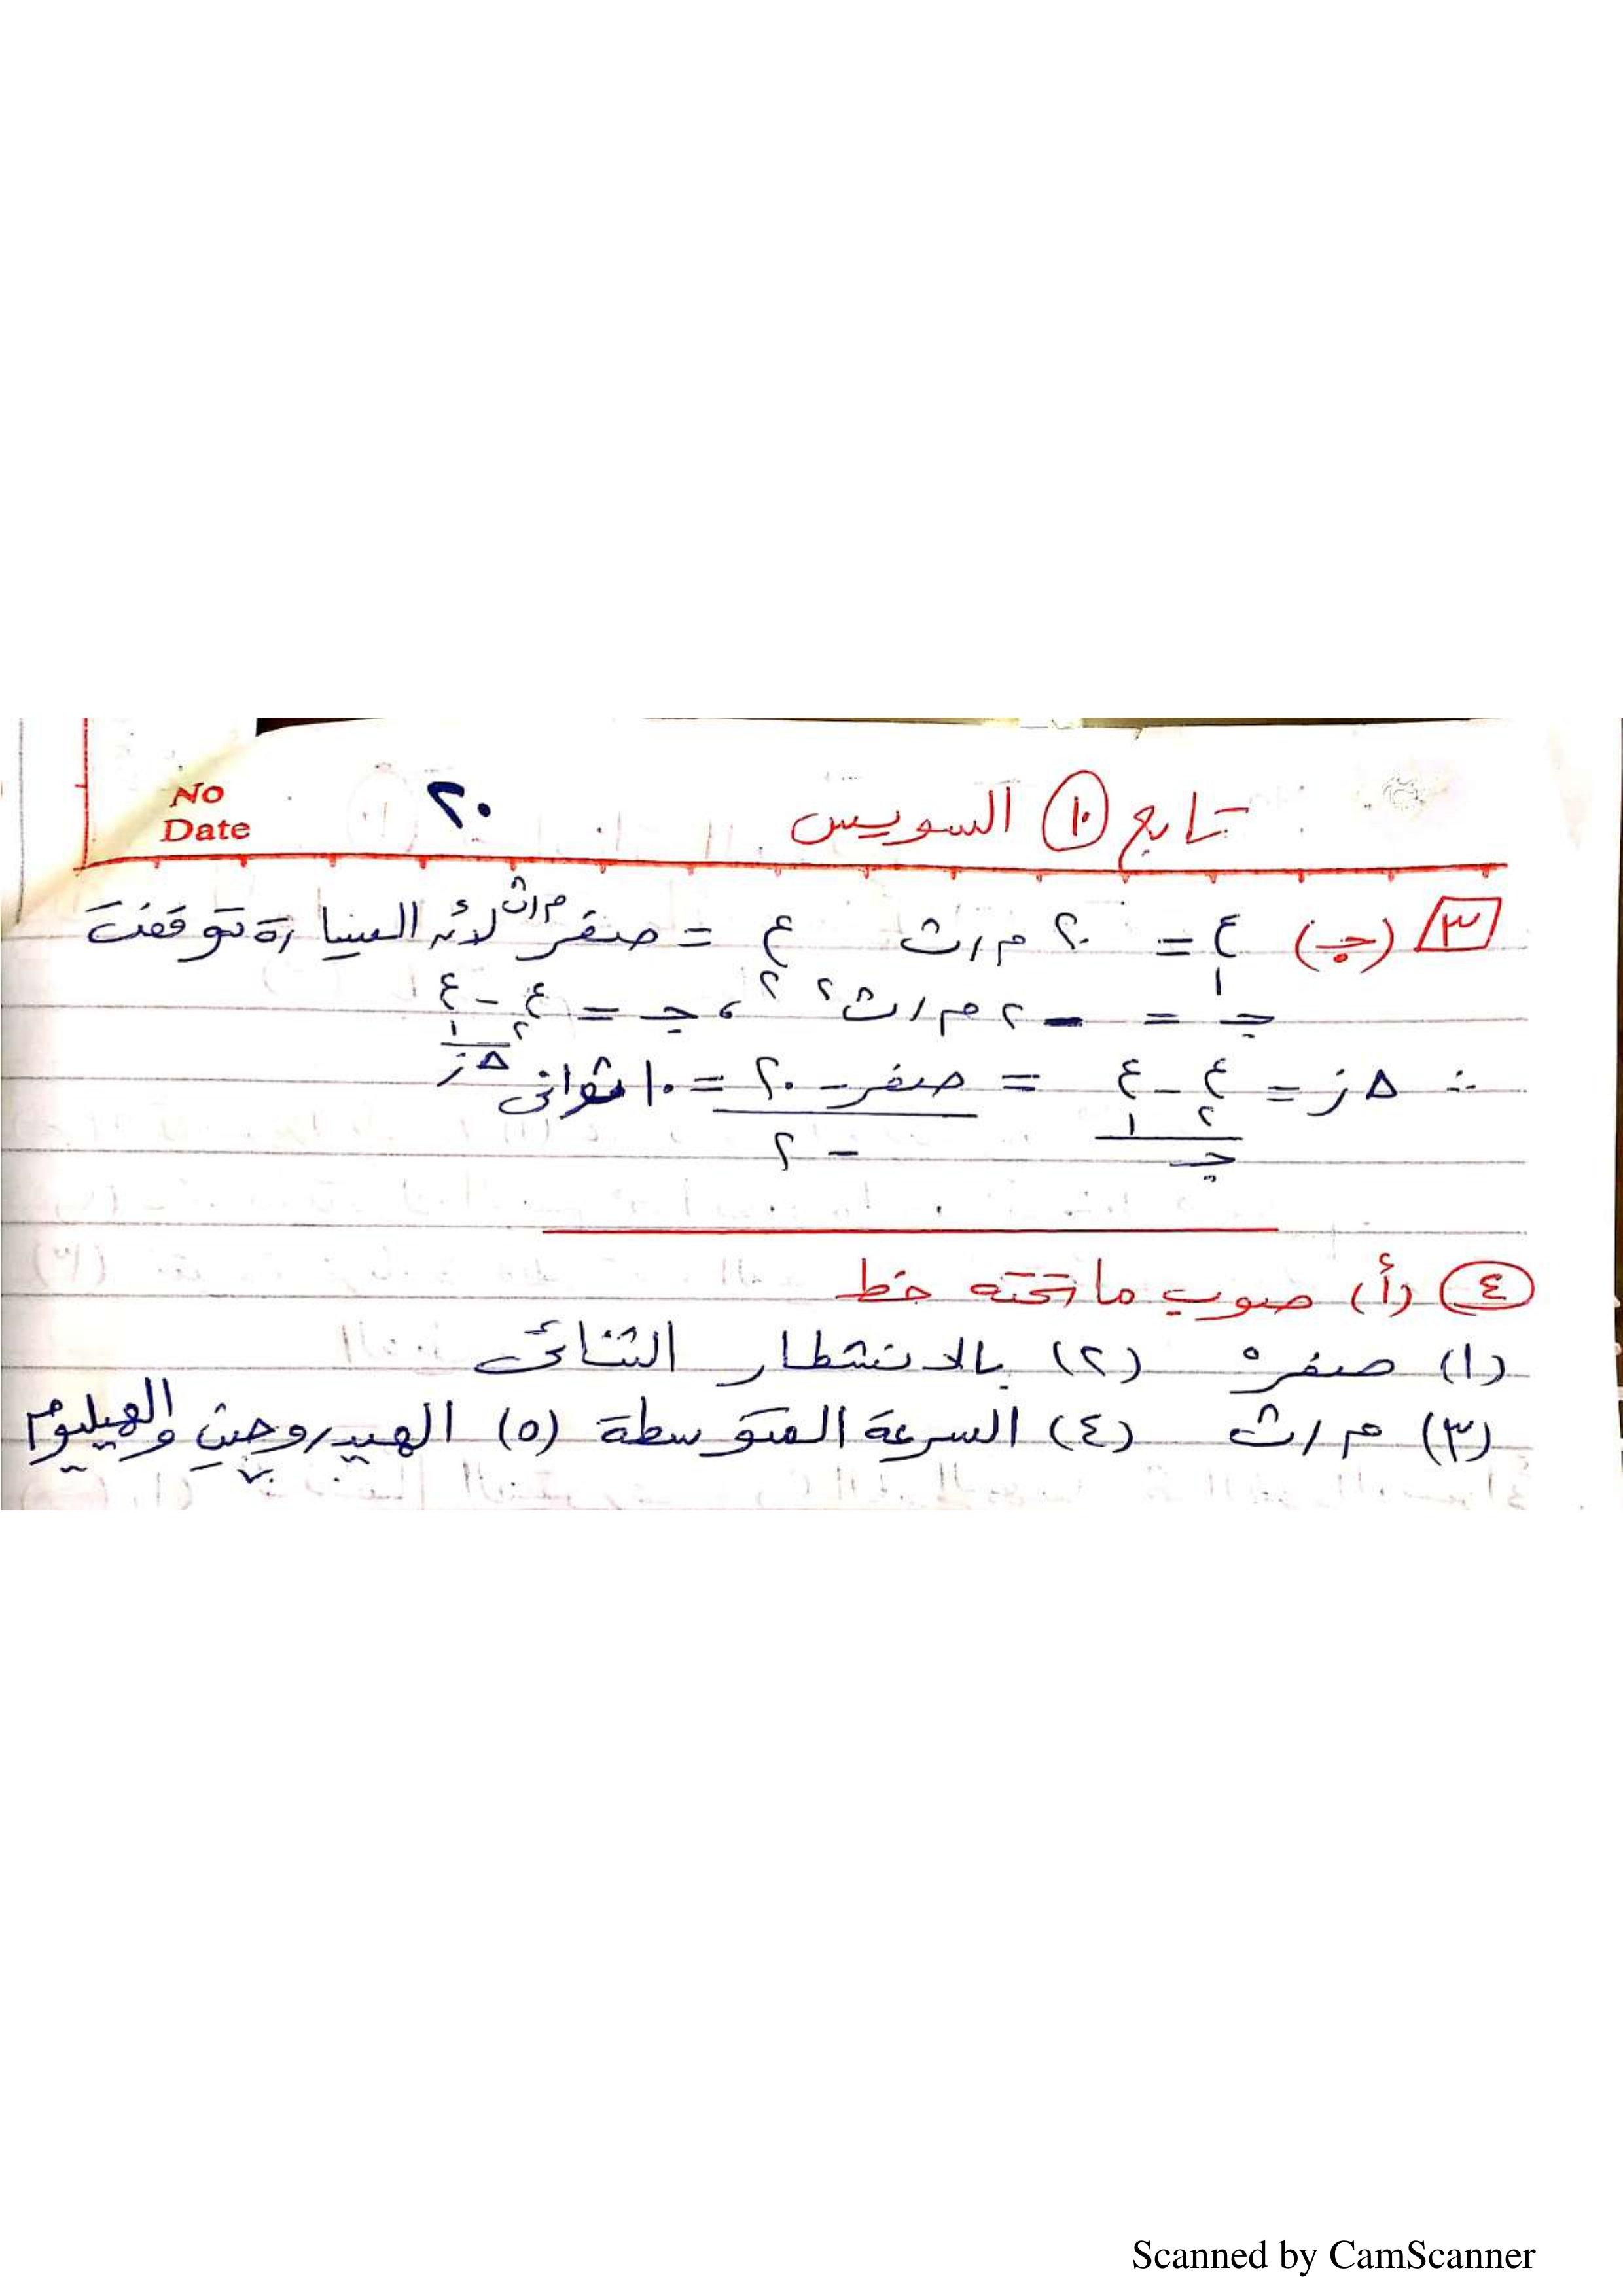 No
Date
٢٠
تابع ١٠ السويس
٣ (جـ) ع١ = ٢٠ م/ث ع٢ = صفر م/ث لأنه السيارة توقفت
جـ = -٢ م/ث٢ ، جـ = ع٢ - ع١ / Δز
∴ Δز = ع٢ - ع١ / جـ = صفر - ٢٠ / -٢ = ١٠ ثوانى
٤ (أ) صوب ما تحته خط
(١) صفر° (٢) بالانشطار الثنائى
(٣) م/ث (٤) السرعة المتوسطة (٥) الهيدروجين والهيليوم
Scanned by CamScanner